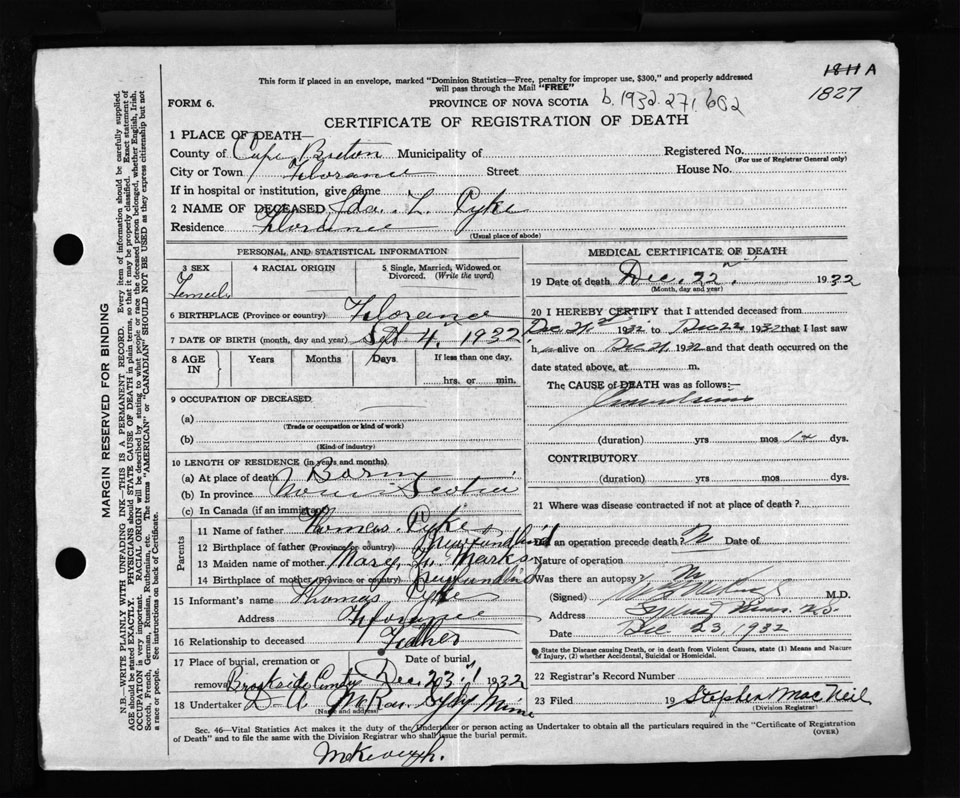 1811 A
1827
This form if placed in an envelope, marked "Dominion Statistics—Free, penalty for improper use, $300," and properly addressed
will pass through the Mail "FREE"
FORM 6.
PROVINCE OF NOVA SCOTIA
b. 1932.271.602
CERTIFICATE OF REGISTRATION OF DEATH
1 PLACE OF DEATH—
County of Cape Breton Municipality of
Registered No.
(For use of Registrar General only)
City or Town Florance Street House No.
If in hospital or institution, give name
2 NAME OF DECEASED Ida. L. Pyke
Residence Florence
(Usual place of abode)
PERSONAL AND STATISTICAL INFORMATION
3 SEX Female
4 RACIAL ORIGIN
5 Single, Married, Widowed or Divorced. (Write the word)
6 BIRTHPLACE (Province or country) Florence
7 DATE OF BIRTH (month, day and year) Sept 4, 1932
8 AGE IN Years Months Days If less than one day,
hrs. or min.
9 OCCUPATION OF DECEASED
(a)
(Trade or occupation or kind of work)
(b)
(Kind of industry)
10 LENGTH OF RESIDENCE (in years and months)
(a) At place of death Born
(b) In province Nova Scotia
(c) In Canada (if an immigrant)
Parents
11 Name of father Thomas. Pyke
12 Birthplace of father (Province or country) Newfundl'd
13 Maiden name of mother Mary Marks
14 Birthplace of mother (Province or country)
15 Informant's name Thomas Pyke
Address Florence
16 Relationship to deceased Father
17 Place of burial, cremation or removal Brookside
Date of burial Dec 23, 1932
18 Undertaker D. A McRae Sydy Mines
(Name and address)
MEDICAL CERTIFICATE OF DEATH
19 Date of death Dec. 22nd, 1932
(Month, day and year)
20 I HEREBY CERTIFY that I attended deceased from
Dec 21st 1932 to Dec 22 1932 that I last saw
h alive on Dec 21, 1932 and that death occurred on the
date stated above, at m.
The CAUSE of DEATH was as follows:—
(duration) yrs mos 14 dys.
CONTRIBUTORY
(duration) yrs mos dys.
21 Where was disease contracted if not at place of death?
Did an operation precede death? No Date of
Nature of operation
Was there an autopsy? No
(Signed) M.D.
Address Sydney Mines. N.S.
Date Dec 23, 1932
State the Disease causing Death, or in death from Violent Causes, state (1) Means and Nature
of Injury, (2) whether Accidental, Suicidal or Homicidal.
22 Registrar's Record Number
23 Filed 19 Stephen MacNeil
(Division Registrar)
Sec. 46—Vital Statistics Act makes it the duty of the Undertaker or person acting as Undertaker to obtain all the particulars required in the "Certificate of Registration
of Death" and to file the same with the Division Registrar who shall issue the burial permit.
(OVER)
MARGIN RESERVED FOR BINDING
N.B.—WRITE PLAINLY WITH UNFADING INK—THIS IS A PERMANENT RECORD. Every item of information should be carefully supplied.
AGE should be stated EXACTLY. PHYSICIANS should STATE CAUSE OF DEATH in plain terms, so that it may be properly classified. Exact statement of
OCCUPATION is very important. RACIAL ORIGIN will be described by stating to what people or race the deceased person belonged, whether English, Irish,
Scotch, French, German, Russian, Ruthenian, etc. The terms "AMERICAN" or "CANADIAN" SHOULD NOT BE USED as they express citizenship but not
a race or people. See instructions on back of Certificate.